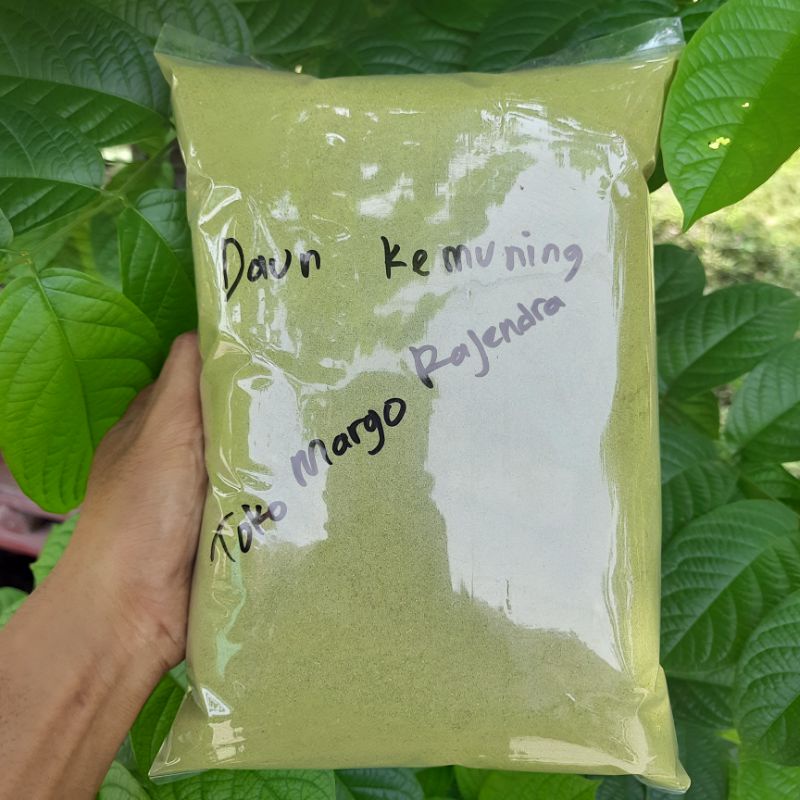 Daun Kemuning
Toko Margo Rajendra